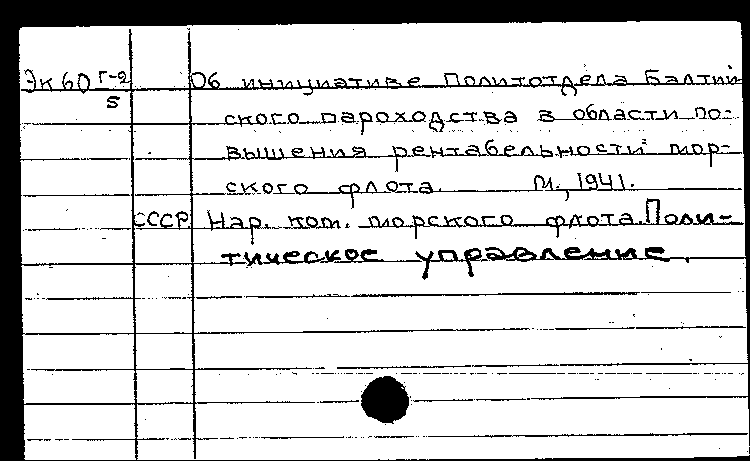 Эк 60 Г-2/5 Об инициативе Политотдела Балтий
ского пароходства в области по-
вышения рентабельности мор-
ского флота. М., 1941.
СССР. Нар. ком. морского флота. Поли-
тическое управление.